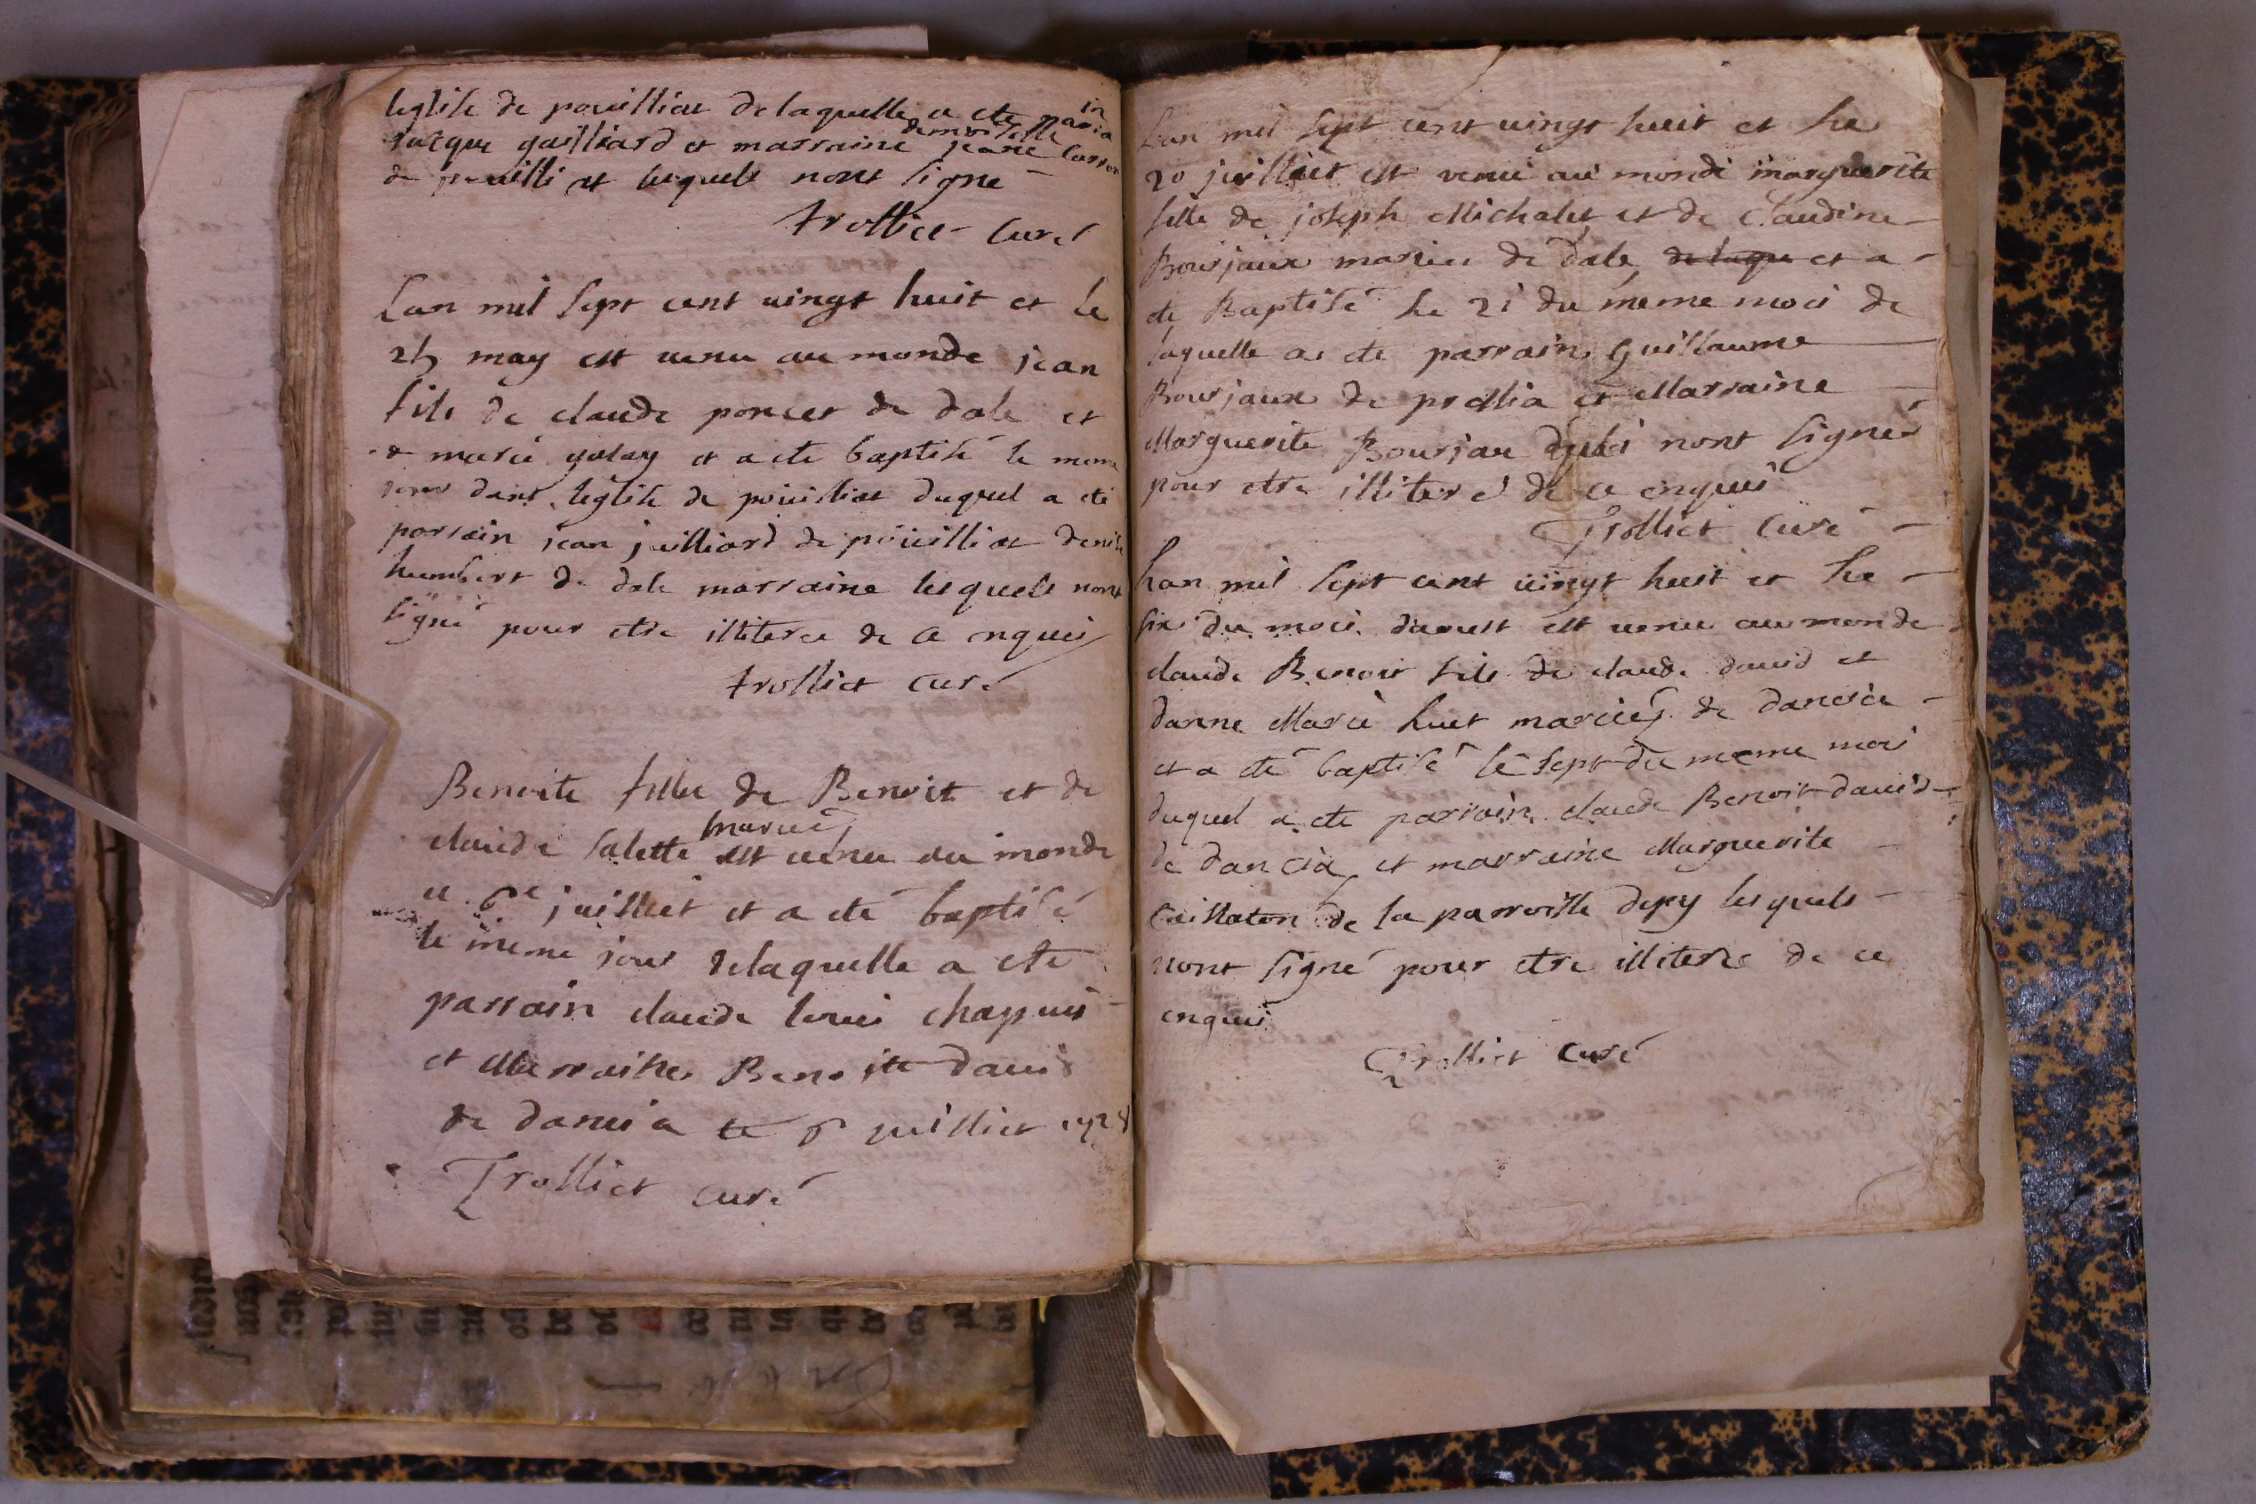 leglise de pouilliat de laquelle a ete parain
Jacque gailliard et marraine demoiselle jeane
de pouilliat lesquels nont signe
trolliet curé
Lan mil sept cent vingt huit et le
may est venu au monde jean
fils de claude poncet de dale et
de marie golay et a ete baptisé le meme
jour dans leglise de pouilliat duquel a eté
parrain jean juilliard de pouilliat denise
humbert de dale marraine lesquels nont
signé pour etre illiteré de ce enquis
trolliet curé
Benoite fille de Benoit et de
claudé salette mariés est venu au monde
ce 6e juilliet et a eté baptisé
le meme jour delaquelle a eté
parrain claude louis chapuis
et Marraine Benoite david
de dancia le 6 juilliet 1728
Trolliet curé
Lan mil sept cent vingt huit et le
20 juilliet est venu au monde marguerite
fille de joseph Michalet et de claudine
Bourjaux mariés de dale de laque et a
ete Baptisé le 21 du meme mois de
laquelle a ete parrain Guillaume
Bourjaux de prellia et Marraine
Marguerite Bourjau nont signés
pour etre illiteré de ce enquis
Trolliet curé
Lan mil sept cent vingt huit et le
six du mois daoust est venu au monde
claude Benoit fils de claude david et
danne Marie huet mariés de dancia
et a eté baptisé le sept du meme mois
duquel a ete parrain claude Benoit david
de dancia et marraine Marguerite
de la parroisse depy lesquels
nont signé pour etre illiteré de ce
enquis
Trolliet curé